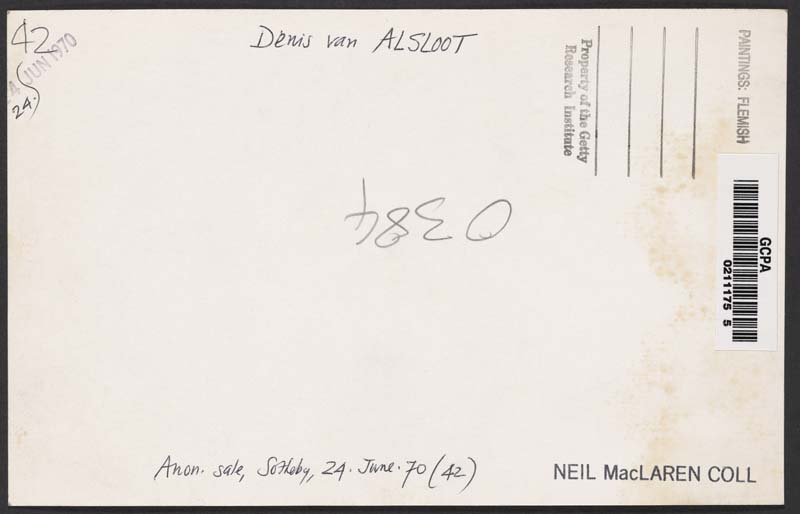 42
24 JUN 1970
24.
Denis van ALSLOOT
Property of the Getty
Research Institute
PAINTINGS: FLEMISH
GCPA
0211175 5
0384
Anon. sale, Sotheby, 24. June. 70 (42)
NEIL MacLAREN COLL